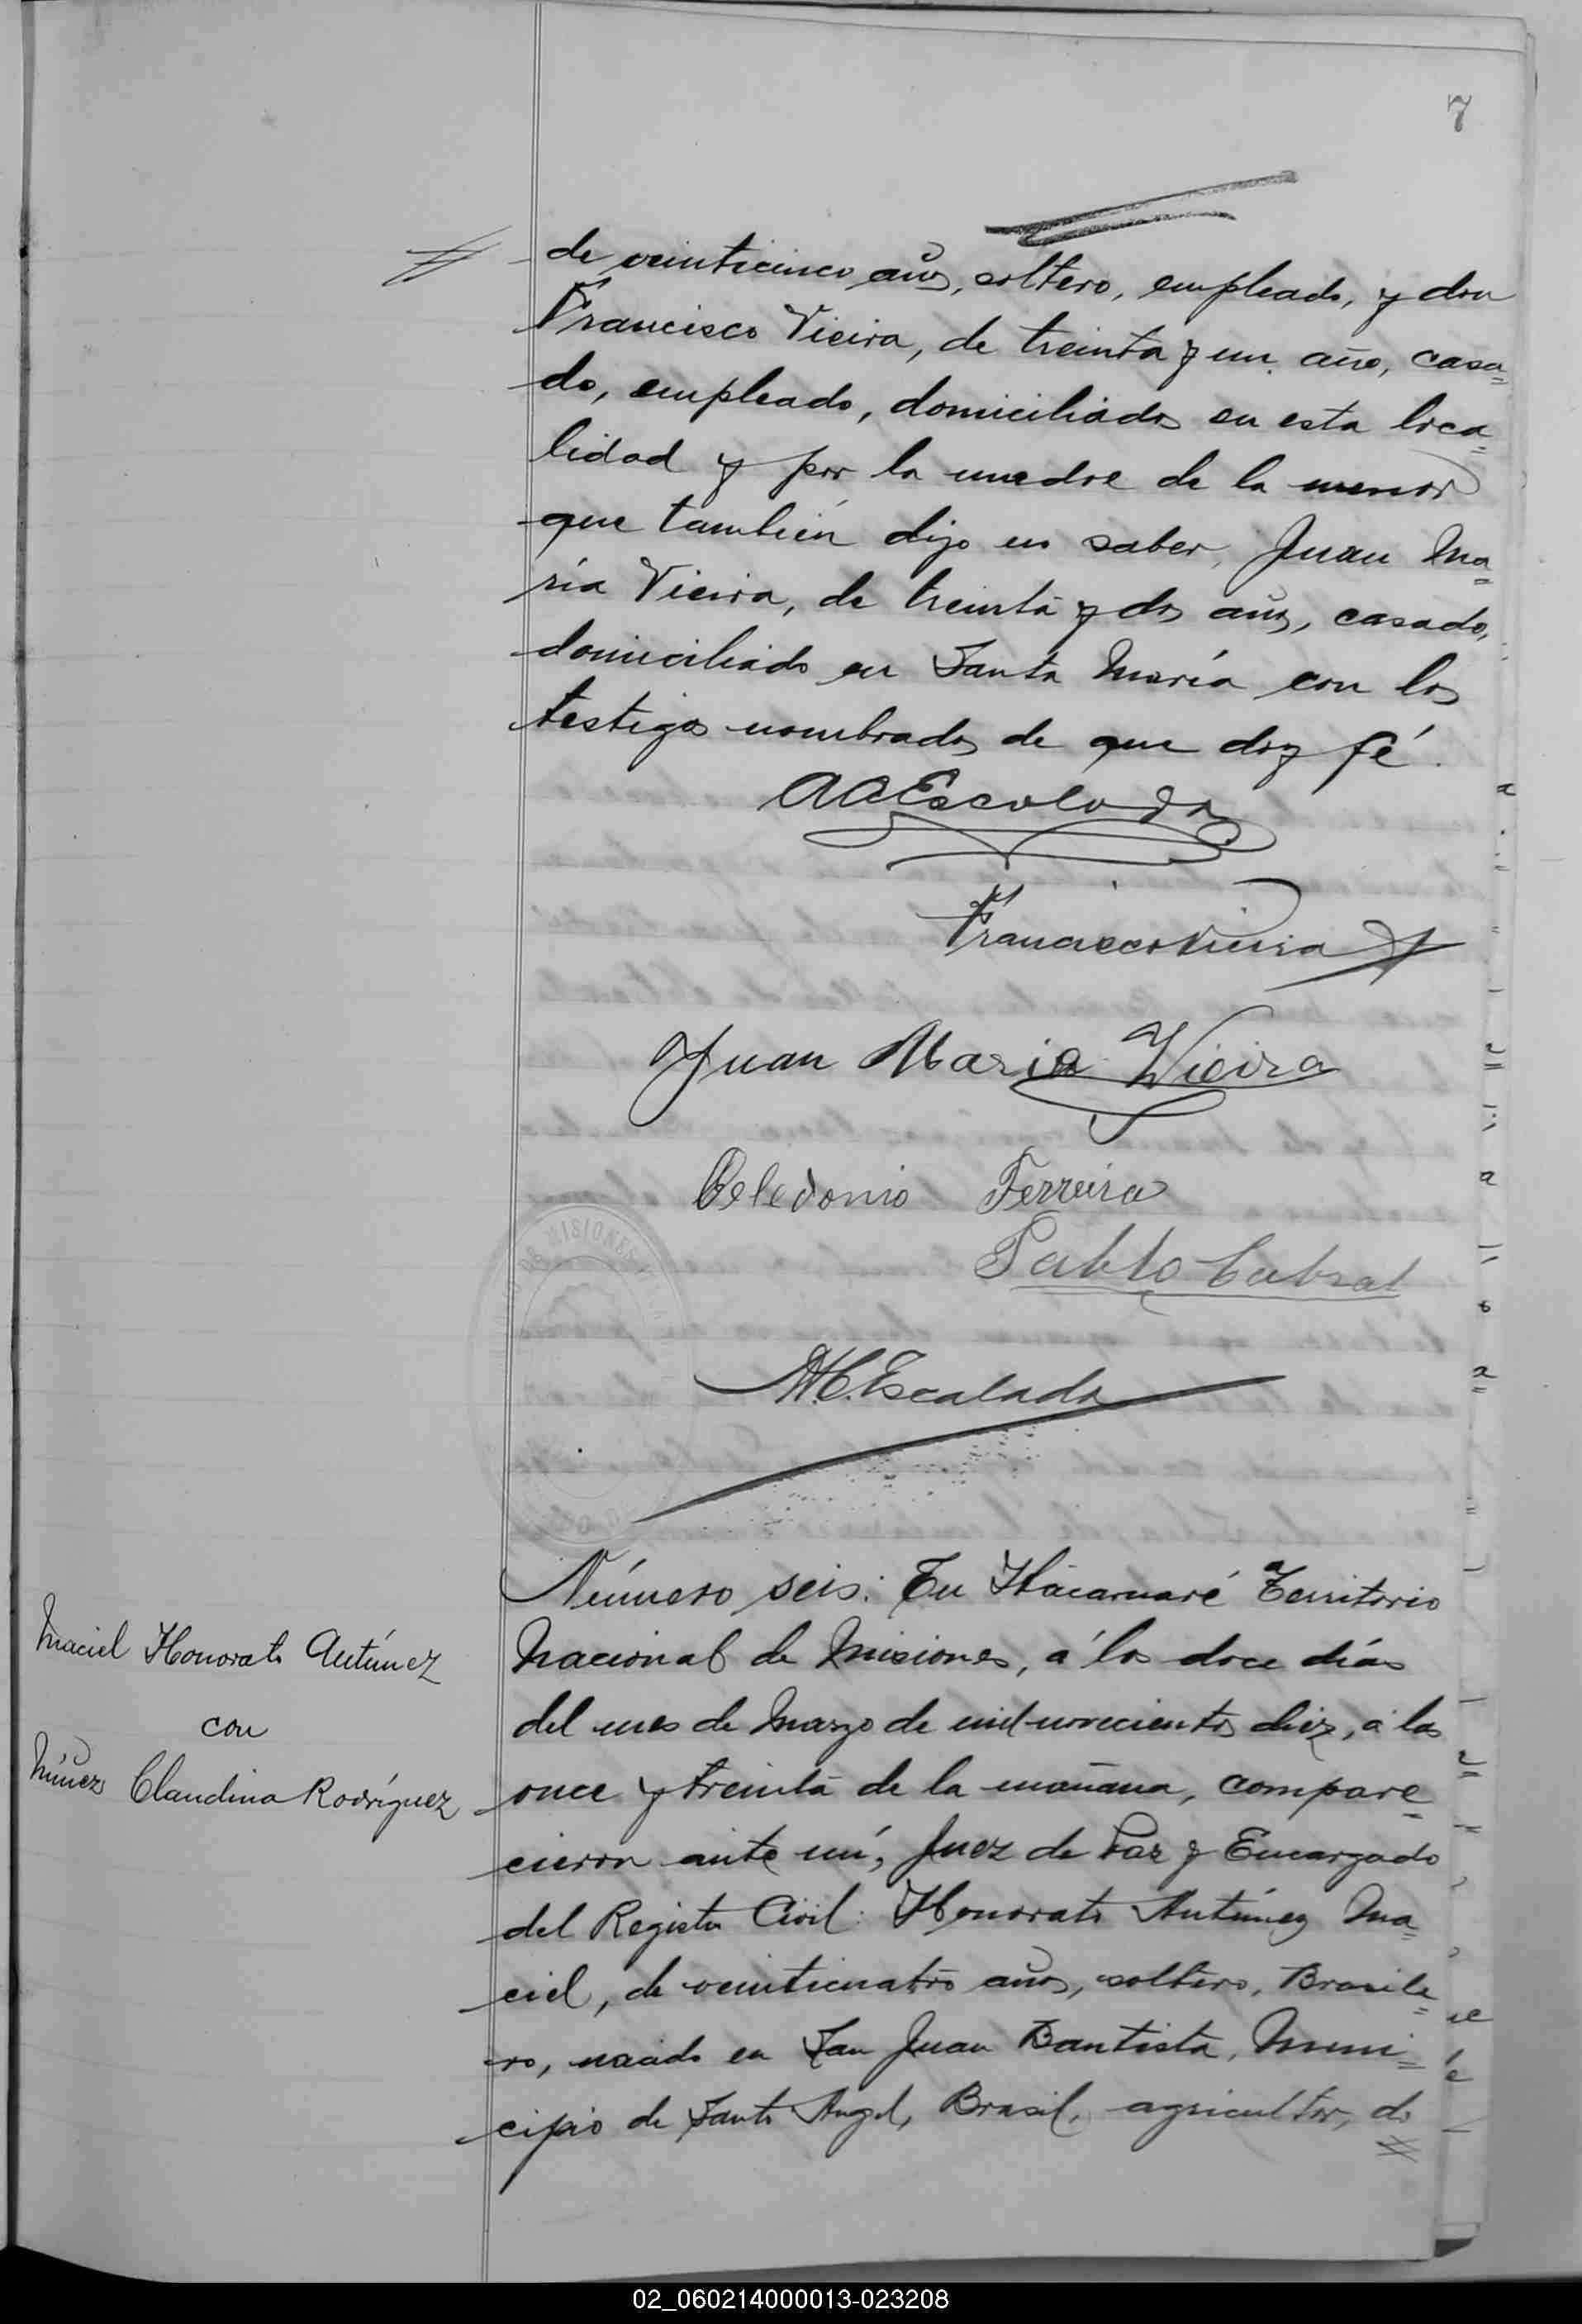 7
de veinticinco años, soltero, empleado, y don
Francisco Vieira, de treinta y un año, casa=
do, empleado, domiciliados en esta loca=
lidad y por la madre de la menor
que también dijo no saber, Juan Ma=
ría Vieira, de treinta y dos años, casado,
domiciliado en Santa María con los
testigos nombrados de que doy fé.
AAEscalada
Francisco Vieira
Juan Maria Vieira
Celedonio Ferreira
Pablo Cabral
MISIONES
M.C.Escalada
Maciel Honorato Antúnez
con
Núnez Claudina Rodríguez
Número seis: En Itacaruaré Territorio
Nacional de Misiones, á los doce días
del mes de Marzo de mil novecientos diez, á las
once y treinta de la mañana, compare=
cieron ante mí, Juez de Paz y Encargado
del Registro Civil: Honorato Antúnez Ma=
ciel, de veinticuatro años, soltero, Brasile=
ro, nacido en San Juan Bautista, Muni=
cipio de Santo Angel, Brasil, agricultor, do
02_060214000013-023208